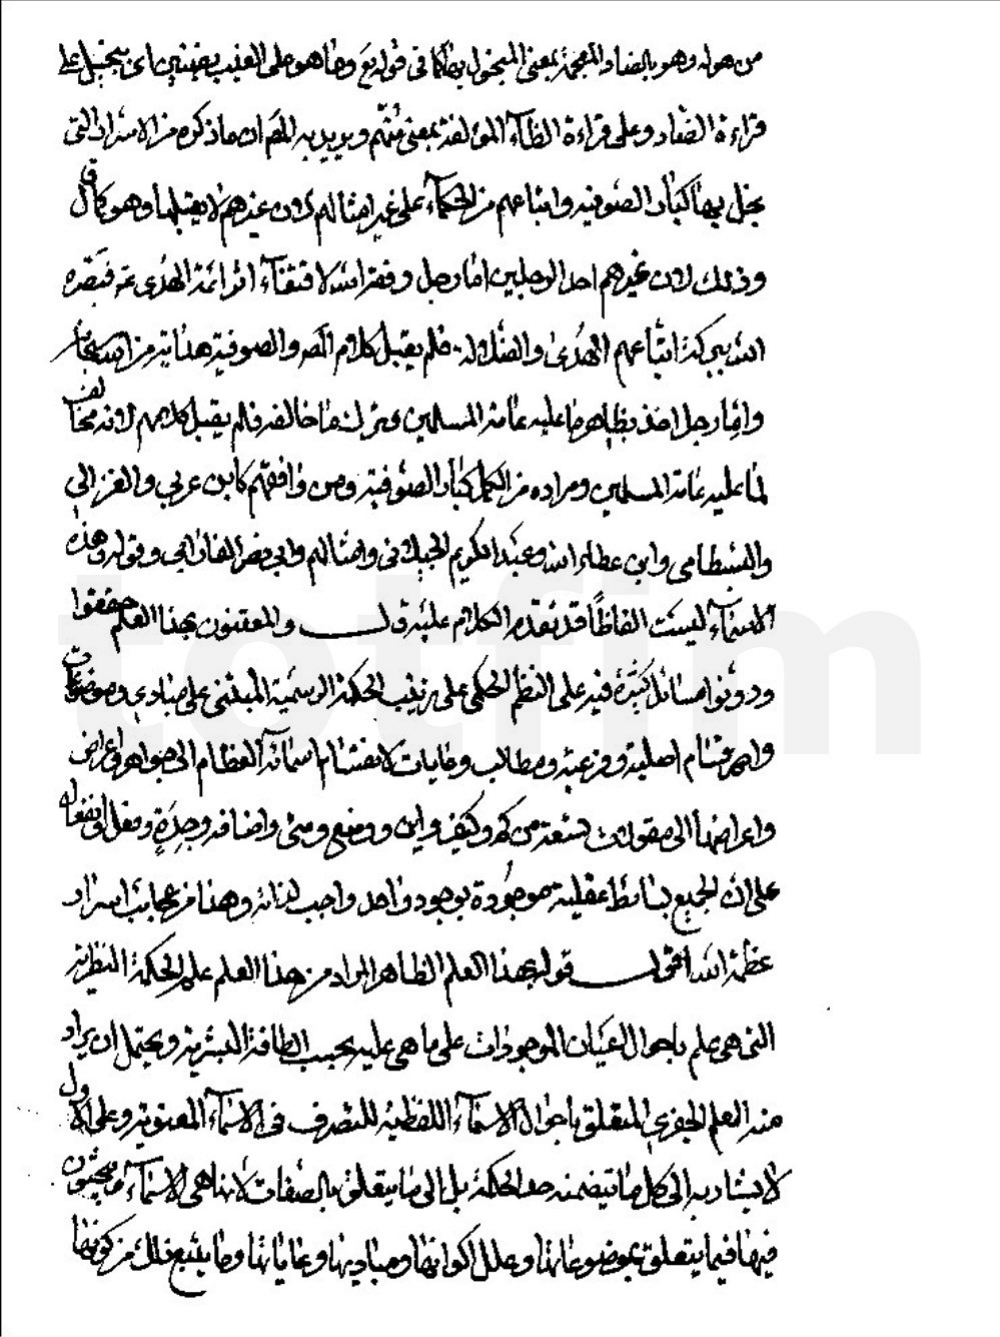 من هوله وهو بالضاد المعجمة بمعنى المبخول بها كما في قوله تع وما هو على الغيب بضنين اى ببخيل على
قراءة الضاد وعلى قراءة الظآء المؤلفة بمعنى متهم ويريد به المص ان ما ذكره من الاسرار التى
بخل بها كبار الصوفية واتباعهم من الحكمآء على غير امثالهم لان غيرهم لا يقبلها وهو كما قال
وذلك لان غيرهم احد الرجلين اما رجل وفقه الله لاقتفآء اثر ائمة الهدى عۤ فبصّره
الله ببركة اتباعهم الهُدى والضلالة فلم يقبل كلام المص والصوفية هداية من الله سبحانه
وامّا رجل اخذ بظاهر ما عليه عامة المسلمين وترك ما خالفه فلم يقبل كلامهم لانه مخالف
لما عليه عامة المسلمين ومراده من الكمل كبار الصوفية ومن وافقهم كابن عربي والغزالي
والبسطامى وابن عطاء الله وعبد الكريم الجيلاني وامثالهم وابي نصر الفارابي وقوله وهذه
الاسمآء ليست الفاظاً قد تقدم الكلام عليه قـــال والمعتنون بهذا العلم حققوا
ودوّنوا مسائل كثيرة فيه على النظم الحكمى على ترتيب الحكمة الرسمية المبتنى على مبادي وموضوعات
واقسام اصلية وفرعية ومطالب وغايات كانقسام اسمائه العظام الى جواهر واعراض
واعراضها الى مقولات تسعة من كم وكيف واين ووضع ومتى واضافة وجِدَةٍ وفعل وانفعال
على ان الجميع بسائط عقلية موجُودة بوجود واحد واجب لذاته وهذا من عجائب اسرار
عظمة الله اقــول قوله بهذا العلم الظاهر المراد من هذا العلم علم الحكمة النظرية
التى هى علم باحوال اعيان الموجودات على ما هى عليه بحسب الطاقة البشرية ويحتمل ان يراد
منه العلم الجفري المتعلق باحوال الاسمآء اللفظية للتصرف فى الاسمآء المعنوية وعلى الاول
لا يشار به الى كل ما تتضمنه حد الحكمة بل الى ما يتعلق بالصفات لانها هى الاسمآء فيبحثون
فيها فيما يتعلق بموضوعاتها وعلل اكوانها ومباديها وغاياتها وما يتبع ذلك من كونها